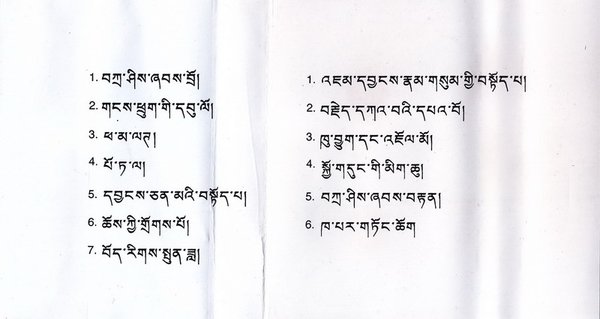 1. བཀྲ་ཤིས་ཞབས་བྲོ།
2. གངས་ཕྲུག་གི་དབུ་ལོ།
3. ཕ་མ་ལཊ།
4. པོ་ཏ་ལ།
5. དབྱངས་ཅན་མའི་བསྟོད་པ།
6. ཆོས་ཀྱི་གྲོགས་པོ།
7. བོད་རིགས་སྤུན་ཟླ།
1. འཇམ་དབྱངས་རྣམ་གསུམ་གྱི་བསྟོད་པ།
2. བརྗེད་དཀའ་བའི་དཔའ་བོ།
3. ཁུ་བྱུག་དང་འཇོལ་མོ།
4. སྐྱོ་གདུང་གི་མིག་ཆུ།
5. བཀྲ་ཤིས་ཞབས་བརྟན།
6. ཁ་པར་གཏོང་ཆོག